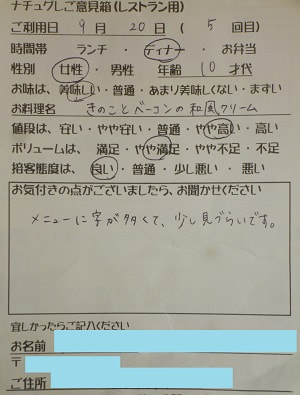 ナチュグレご意見箱(レストラン用)
ご利用日 9月 20日 ( 5 回目)
時間帯 ランチ・ディナー・お弁当
性別 女性・男性 年齢 10 才代
お味は、美味しい・普通・あまり美味しくない・まずい
お料理名 きのことベーコンの和風クリーム
値段は、安い・やや安い・普通・やや高い・高い
ボリュームは、満足・やや満足・やや不足・不足
接客態度は、良い・普通・少し悪い・悪い
お気付きの点がございましたら、お聞かせください
メニューに字が多くて、少し見づらいです。
宜しかったらご記入ください
お名前
〒
ご住所